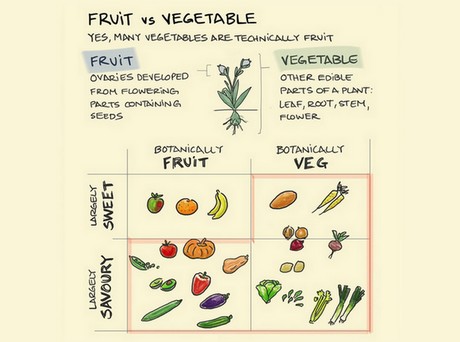 FRUIT vs VEGETABLE
YES, MANY VEGETABLES ARE TECHNICALLY FRUIT
FRUIT
OVARIES DEVELOPED
FROM FLOWERING
PARTS CONTAINING
SEEDS
VEGETABLE
OTHER EDIBLE
PARTS OF A PLANT:
LEAF, ROOT, STEM,
FLOWER
BOTANICALLY
FRUIT
BOTANICALLY
VEG
LARGELY
SWEET
LARGELY
SAVOURY